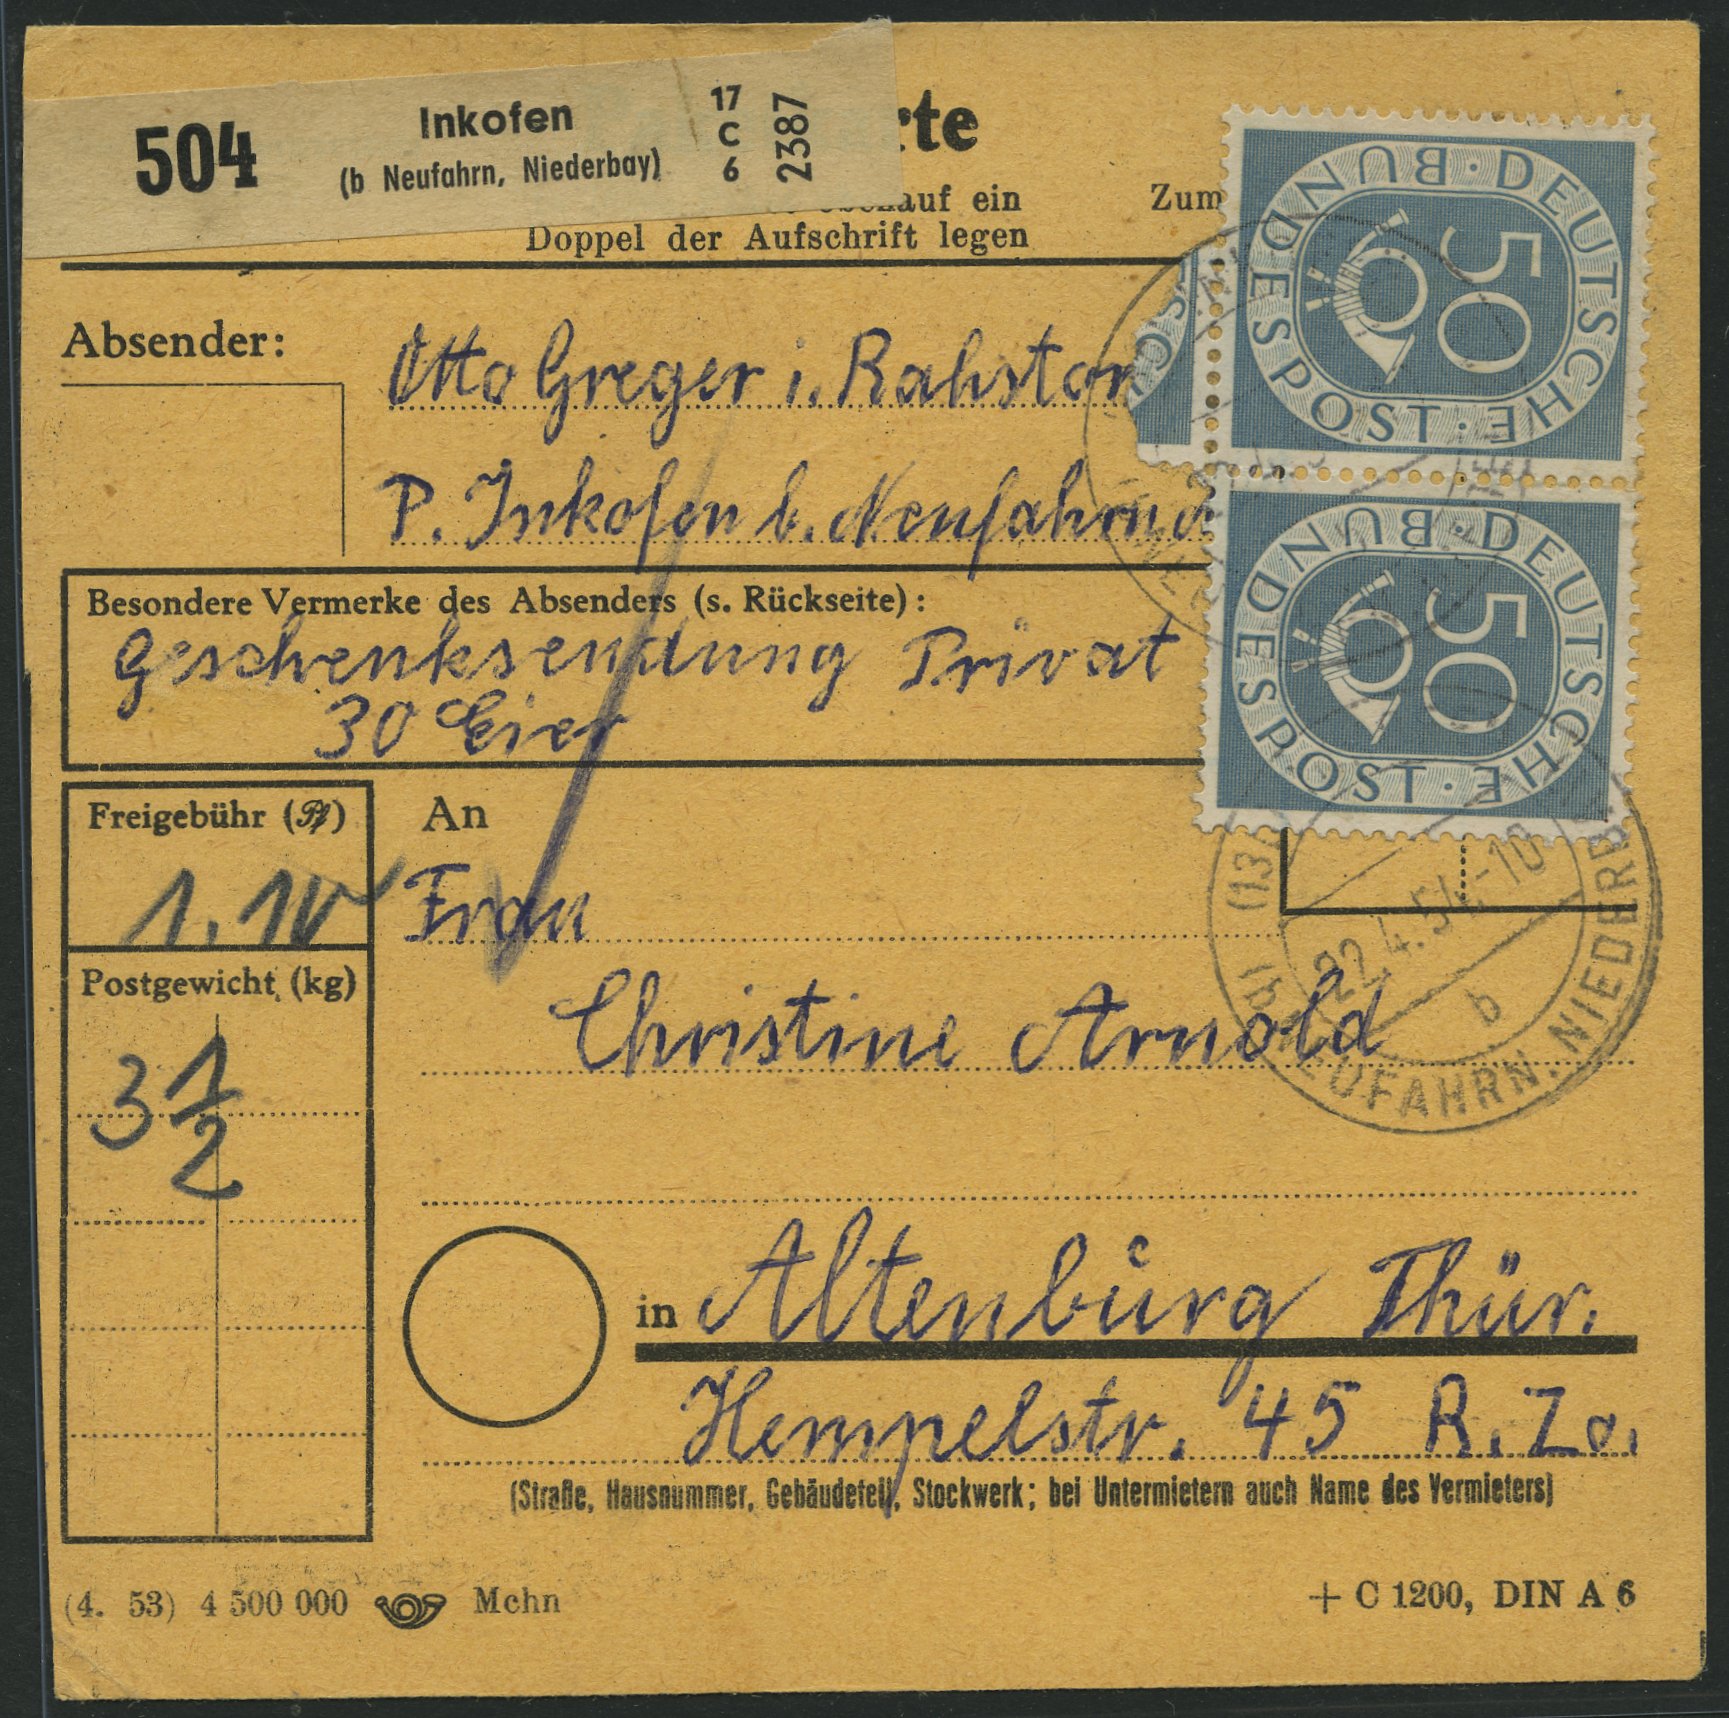 504 Inkofen
(b Neufahrn, Niederbay)
17
C
6
2387
rte
auf ein
Doppel der Aufschrift legen
Zum
Absender:
Otto Greger i. Rahstor
P. Inkofen b. Neufahrn
Besondere Vermerke des Absenders (s. Rückseite):
Geschenksendung Privat
30 Eier
Freigebühr (Pf)
1.10
Postgewicht (kg)
3 1/2
An
Frau
Christine Arnold
in Altenburg Thür.
Hempelstr. 45 R. Zo.
(Straße, Hausnummer, Gebäudeteil, Stockwerk; bei Untermietern auch Name des Vermieters)
(4. 53) 4 500 000 Mchn
+ C 1200, DIN A 6
DEUTSCHE BUNDESPOST
50
DEUTSCHE BUNDESPOST
50
22.4.54-10
b
NEUFAHRN. NIEDERB